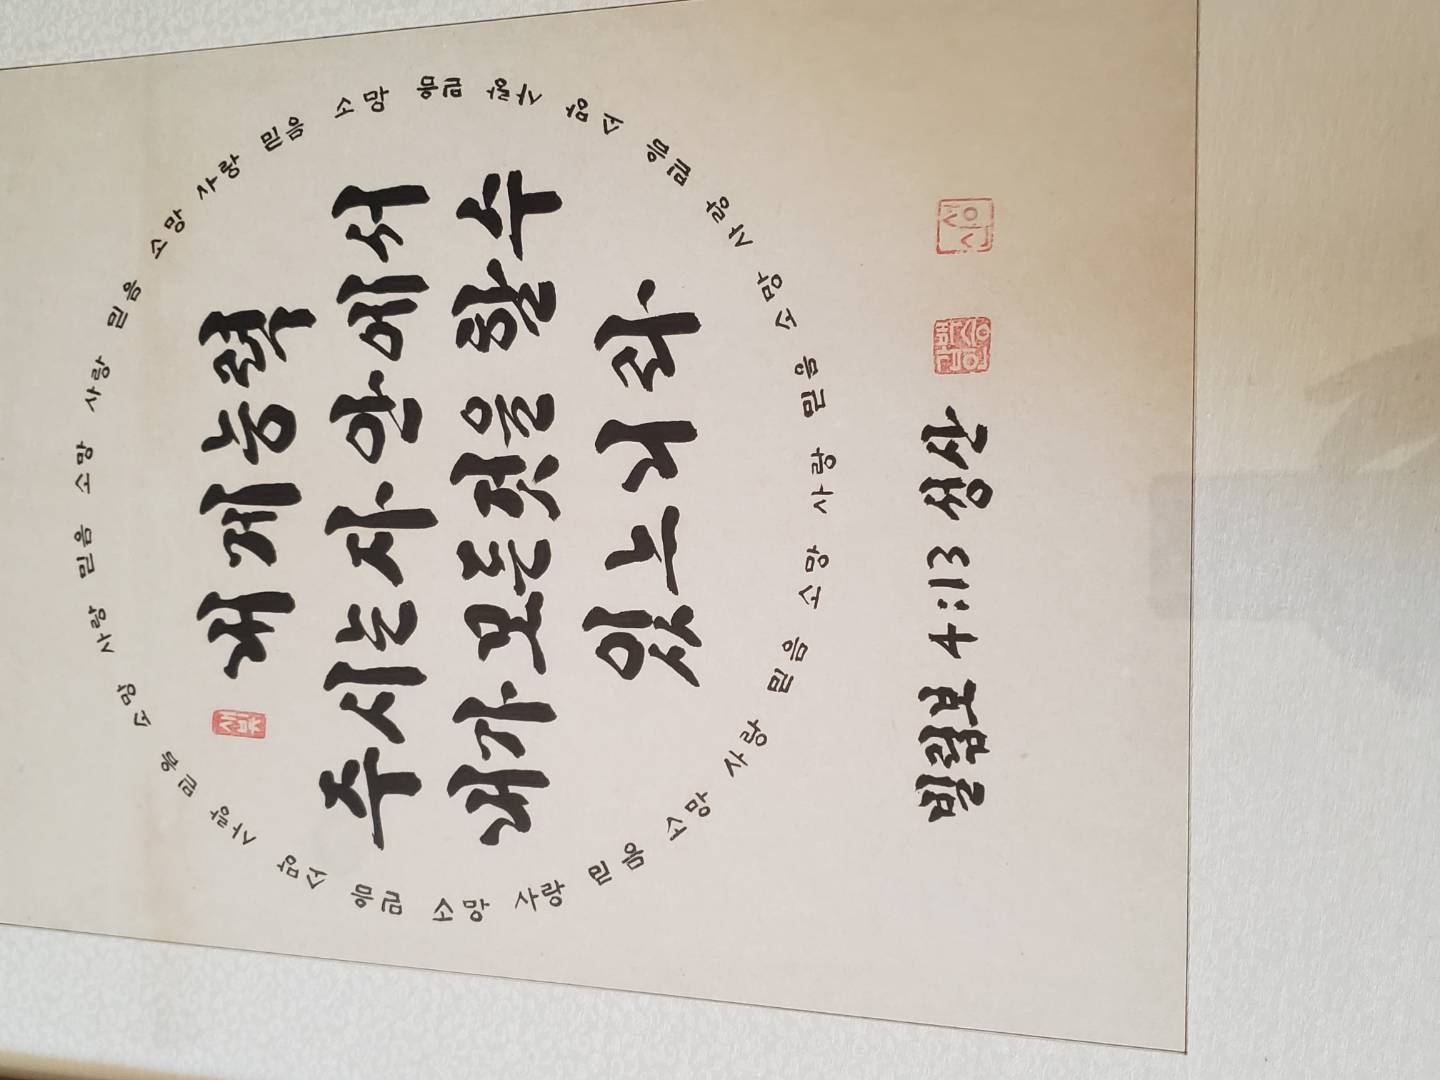 믿음 소망 사랑 믿음 소망 사랑 믿음 소망 믿음 사랑 소망 믿음 사랑 소망 믿음 사랑 소망 믿음 사랑 소망 믿음 사랑 소망 믿음 소망 사랑 믿음 소망 사랑
내게 능력
주시는 자 안에서
내가 모든것을 할 수
있느니라
빌립보 4:13 성산